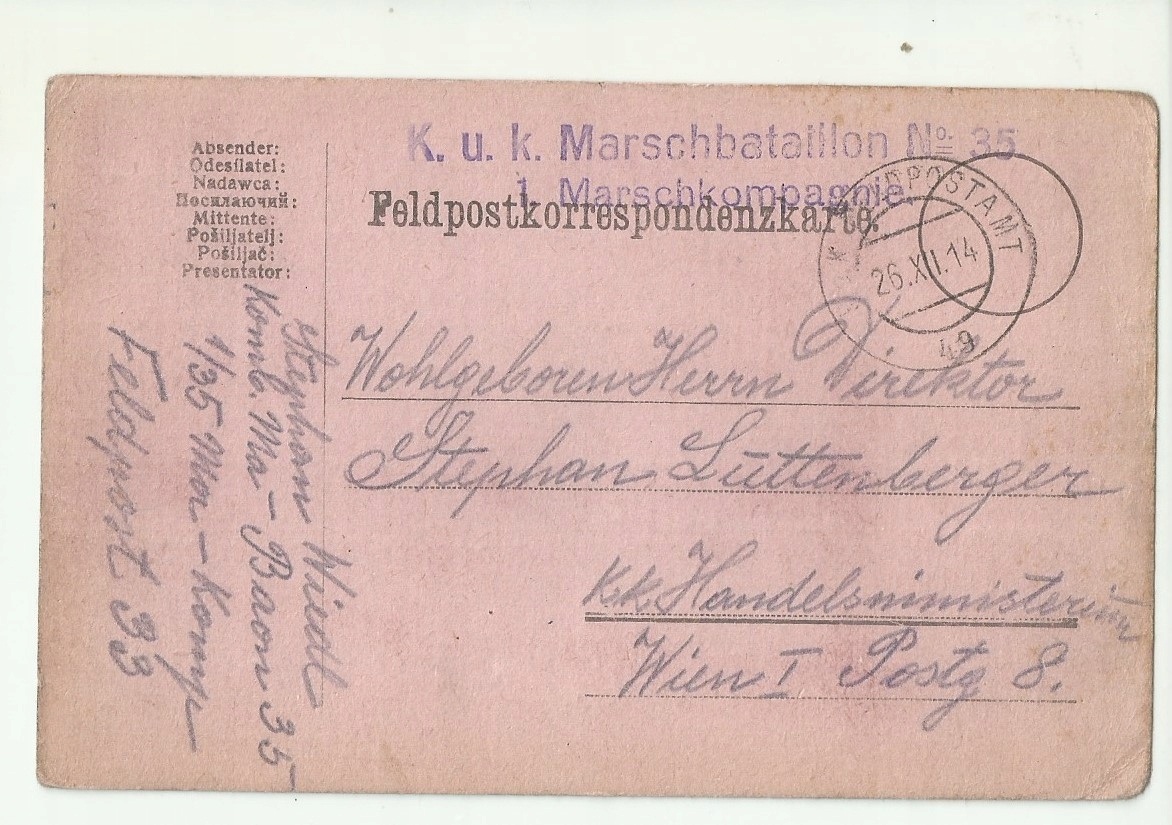 K. u. k. Marschbataillon No. 35
1. Marschkompagnie.
Feldpostkorrespondenzkarte.
Absender:
Odesílatel:
Nadawca:
Посилаючий:
Mittente:
Pošiljatelj:
Pošiljač:
Presentator:
FELDPOSTAMT
26.XII.14
49
Wohlgeboren Herrn Direktor
Stephan Luttenberger
k.k. Handelsministerium
Wien I Postg 8.
Stephan Wiedl
Komb. Ma - Baon 35
1/35 Mar. - Komp
Feldpost 33